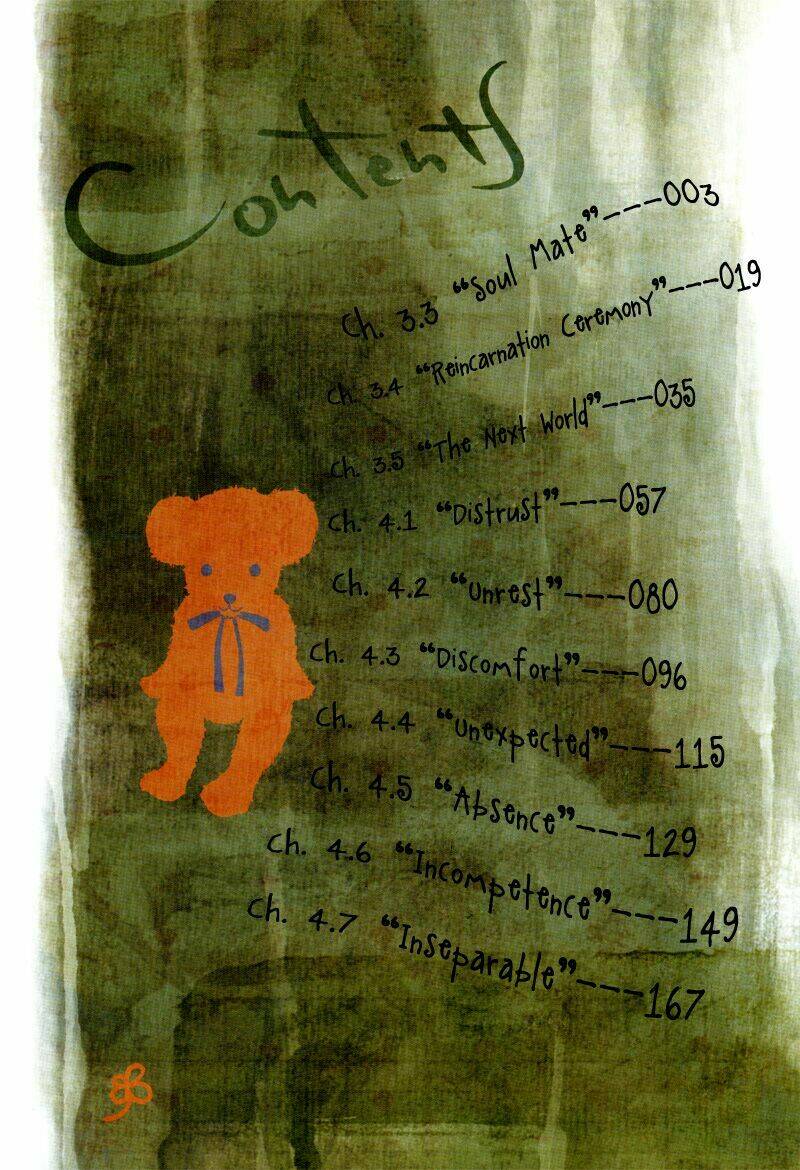 Contents
Ch. 3.3 “Soul Mate”---003
Ch. 3.4 “Reincarnation Ceremony”---019
Ch. 3.5 “The Next World”---035
Ch. 4.1 “Distrust”---057
Ch. 4.2 “Unrest”---080
Ch. 4.3 “Discomfort”---096
Ch. 4.4 “Unexpected”---115
Ch. 4.5 “Absence”---129
Ch. 4.6 “Incompetence”---149
Ch. 4.7 “Inseparable”---167